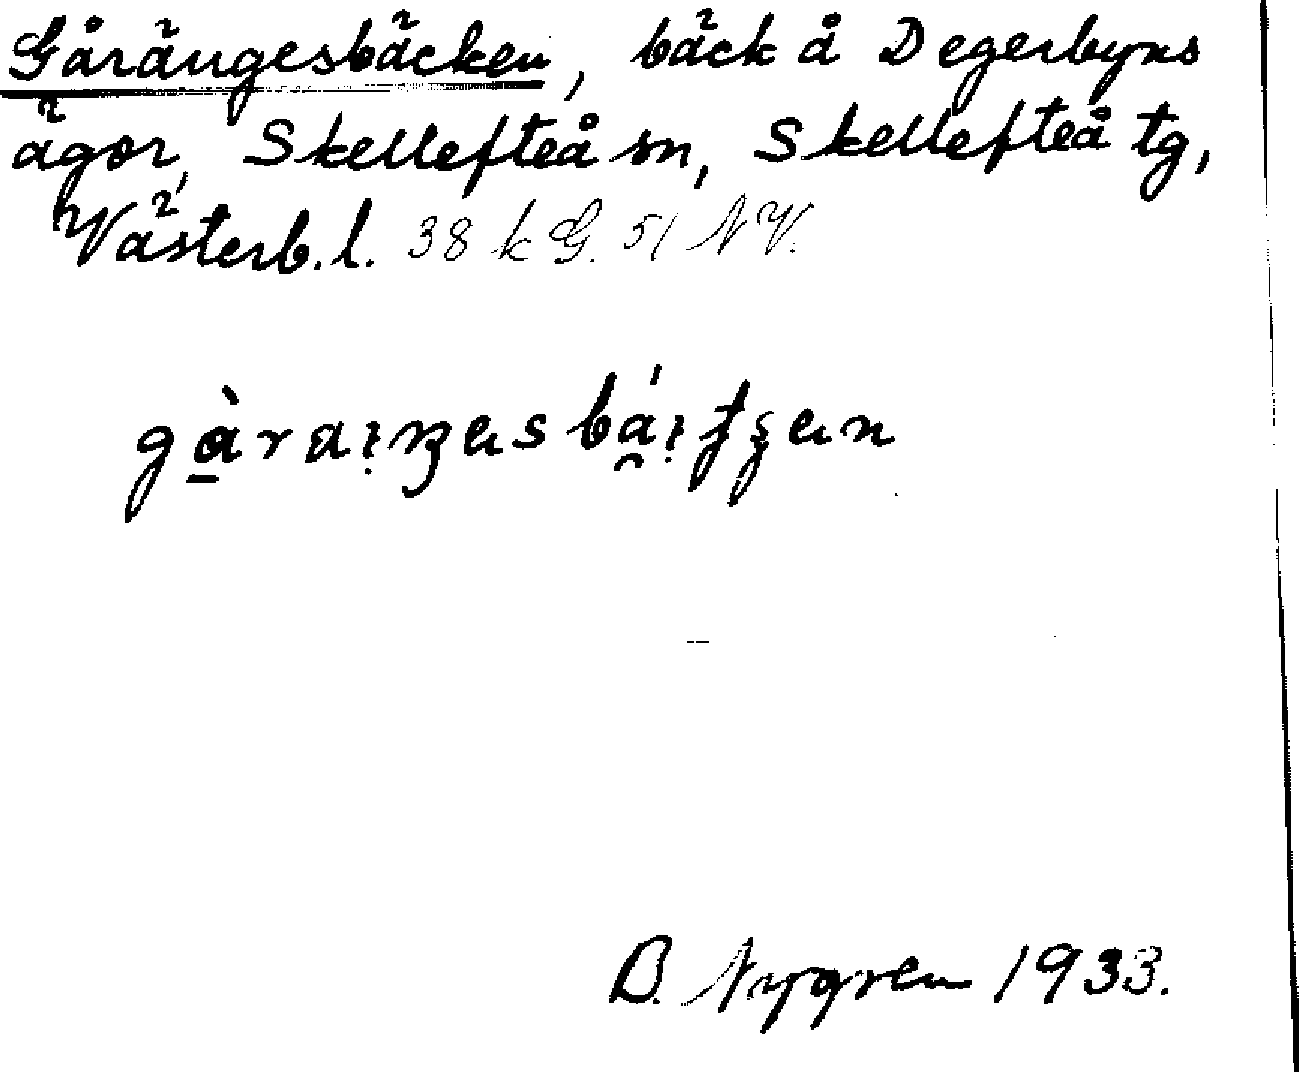 Gårängesbäcken, bäck å Degerbyns
ägor, Skellefteå sn, Skellefteå tg,
Västerb. l. 38 k G. 51 NV.
B. Nygren 1933.